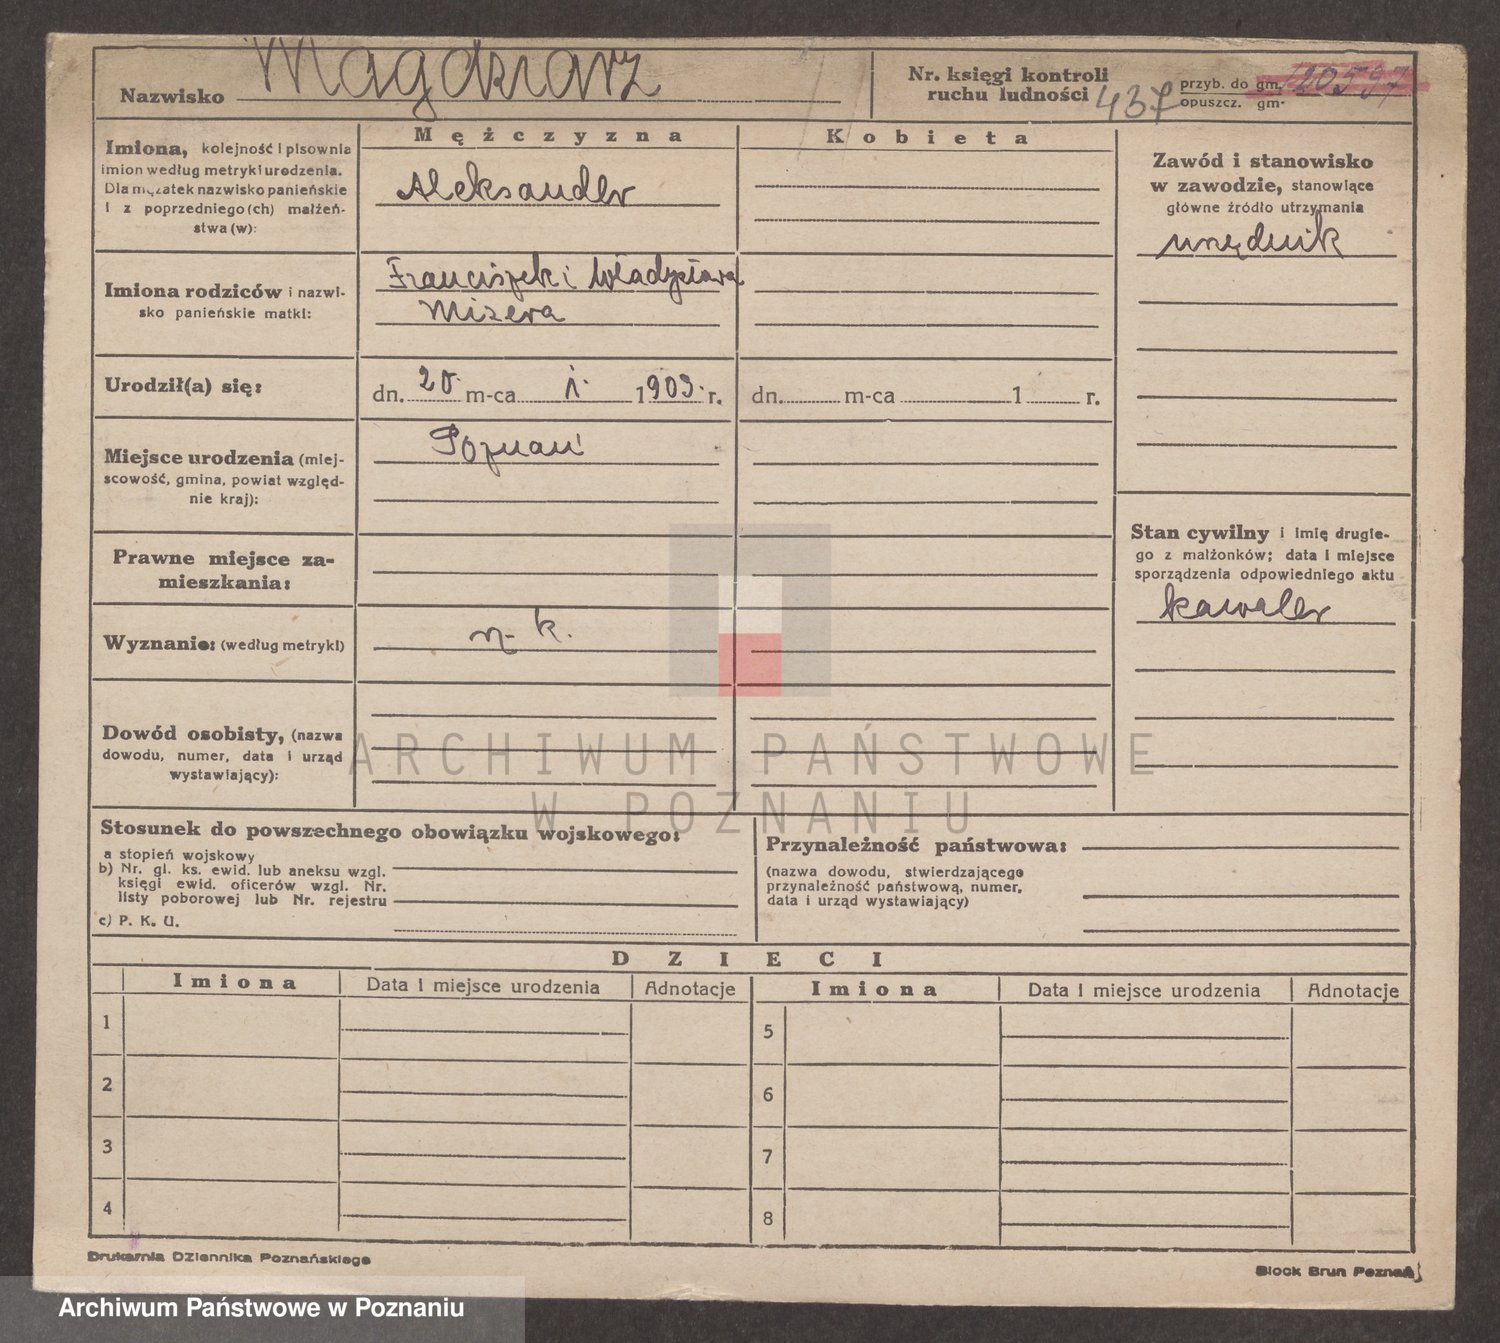 Nazwisko Magdziarz
Nr. księgi kontroli ruchu ludności 437
przyb. do gm. 120597
opuszcz. gm.
Mężczyzna
Kobieta
Imiona, kolejność i pisownia
imion według metryki urodzenia.
Dla mężatek nazwisko panieńskie
i z poprzedniego (ch) małżeń-
stwa (w):
Aleksander
Zawód i stanowisko
w zawodzie, stanowiące
główne źródło utrzymania
urzędnik
Imiona rodziców i nazwi-
sko panieńskie matki:
Franciszek i Władysława
Mizera
Urodził(a) się:
dn. 20. m-ca 1. 1903. r.
dn. m-ca 1 r.
Miejsce urodzenia (miej-
scowość, gmina, powiat względ-
nie kraj):
Poznań
Stan cywilny i imię drugie-
go z małżonków; data i miejsce
sporządzenia odpowiedniego aktu
kawaler
Prawne miejsce za-
mieszkania:
Wyznanie: (według metryki)
r-k.
Dowód osobisty, (nazwa
dowodu, numer, data i urząd
wystawiający):
ARCHIWUM PAŃSTWOWE
W POZNANIU
Stosunek do powszechnego obowiązku wojskowego:
a stopień wojskowy
b) Nr. gl. ks. ewid. lub aneksu wzgl.
księgi ewid. oficerów wzgl. Nr.
listy poborowej lub Nr. rejestru
c) P. K. U.
Przynależność państwowa:
(nazwa dowodu, stwierdzającego
przynależność państwową, numer,
data i urząd wystawiający)
DZIECI
Imiona Data i miejsce urodzenia Adnotacje Imiona Data i miejsce urodzenia Adnotacje
1 5
2 6
3 7
4 8
Drukarnia Dziennika Poznańskiego
Block Brun Poznań
Archiwum Państwowe w Poznaniu